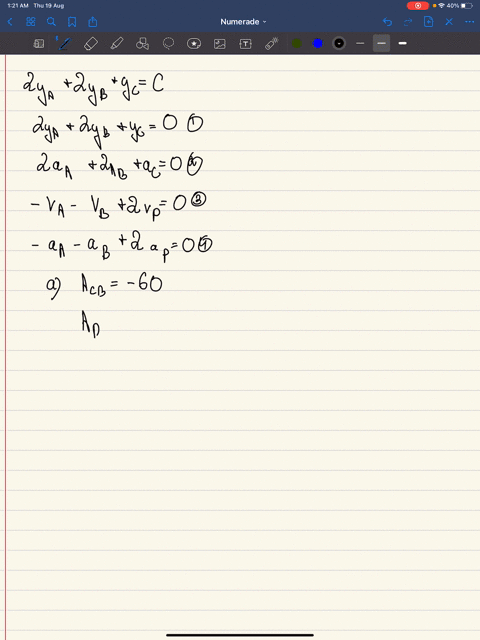 1:21 AM Thu 19 Aug 40%
Numerade
2y_A + 2y_B + y_C = C
2y_A + 2y_B + y_C = 0 ①
2a_A + 2A_B + a_C = 0 ②
- v_A - v_B + 2v_P = 0 ③
- a_A - a_B + 2a_P = 0 ④
a) A_CB = -60
A_D